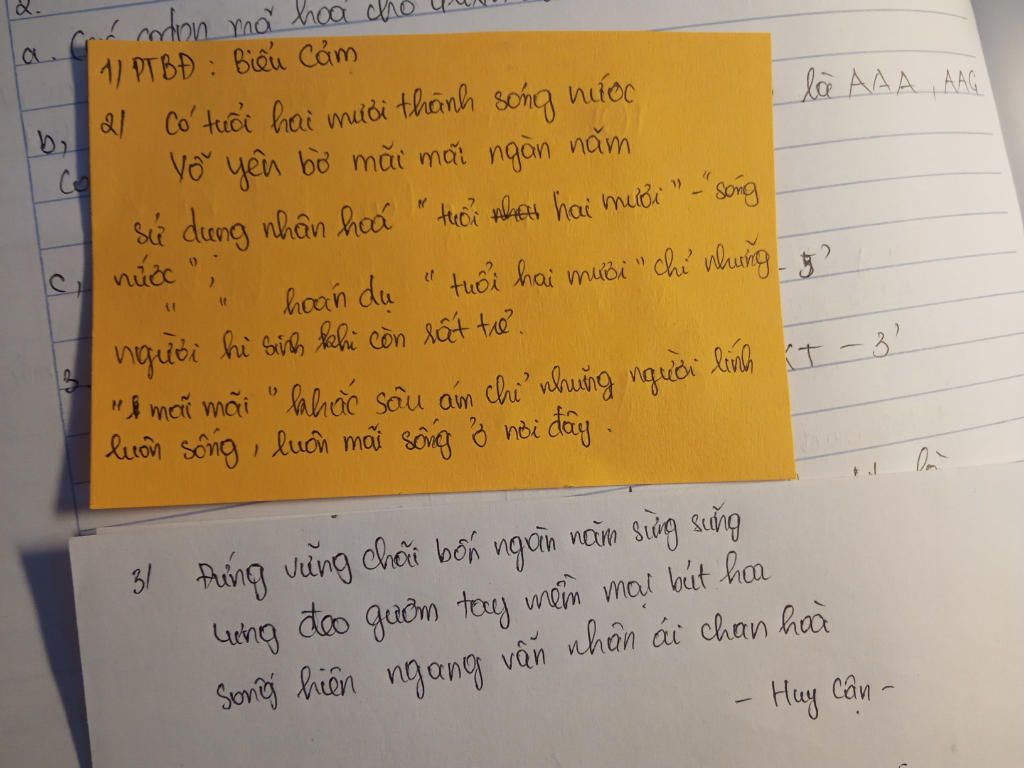 2.
a. codon mã hoá cho
là AAA, AAG
b,
Co
c,
5'
3.
- 3'
1) PTBĐ : Biểu Cảm
2) Có tuổi hai mươi thành sóng nước
Vỗ yên bờ mãi mãi ngàn năm
sử dụng nhân hoá "tuổi hai mươi" - "sóng
nước";
" " hoán dụ "tuổi hai mươi" chỉ những
người hi sinh khi còn rất trẻ.
"mãi mãi" khắc sâu ám chỉ những người lính
luôn sống, luôn mãi sống ở nơi đây.
3) Đứng vững chãi bốn ngàn năm sừng sững
Lưng đeo gươm tay mềm mại bút hoa
sống hiên ngang vẫn nhân ái chan hoà
- Huy Cận -